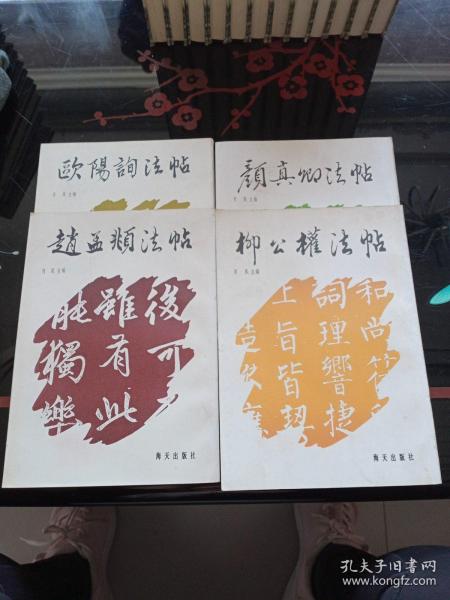 歐陽詢法帖
主编
顏真卿法帖
主编
趙孟頫法帖
主编
後可
雖有此
能獨樂
海天出版社
柳公權法帖
主编
和尚
詞理響捷
上旨皆契
造次
海天出版社
孔夫子旧书网
www.kongfz.com